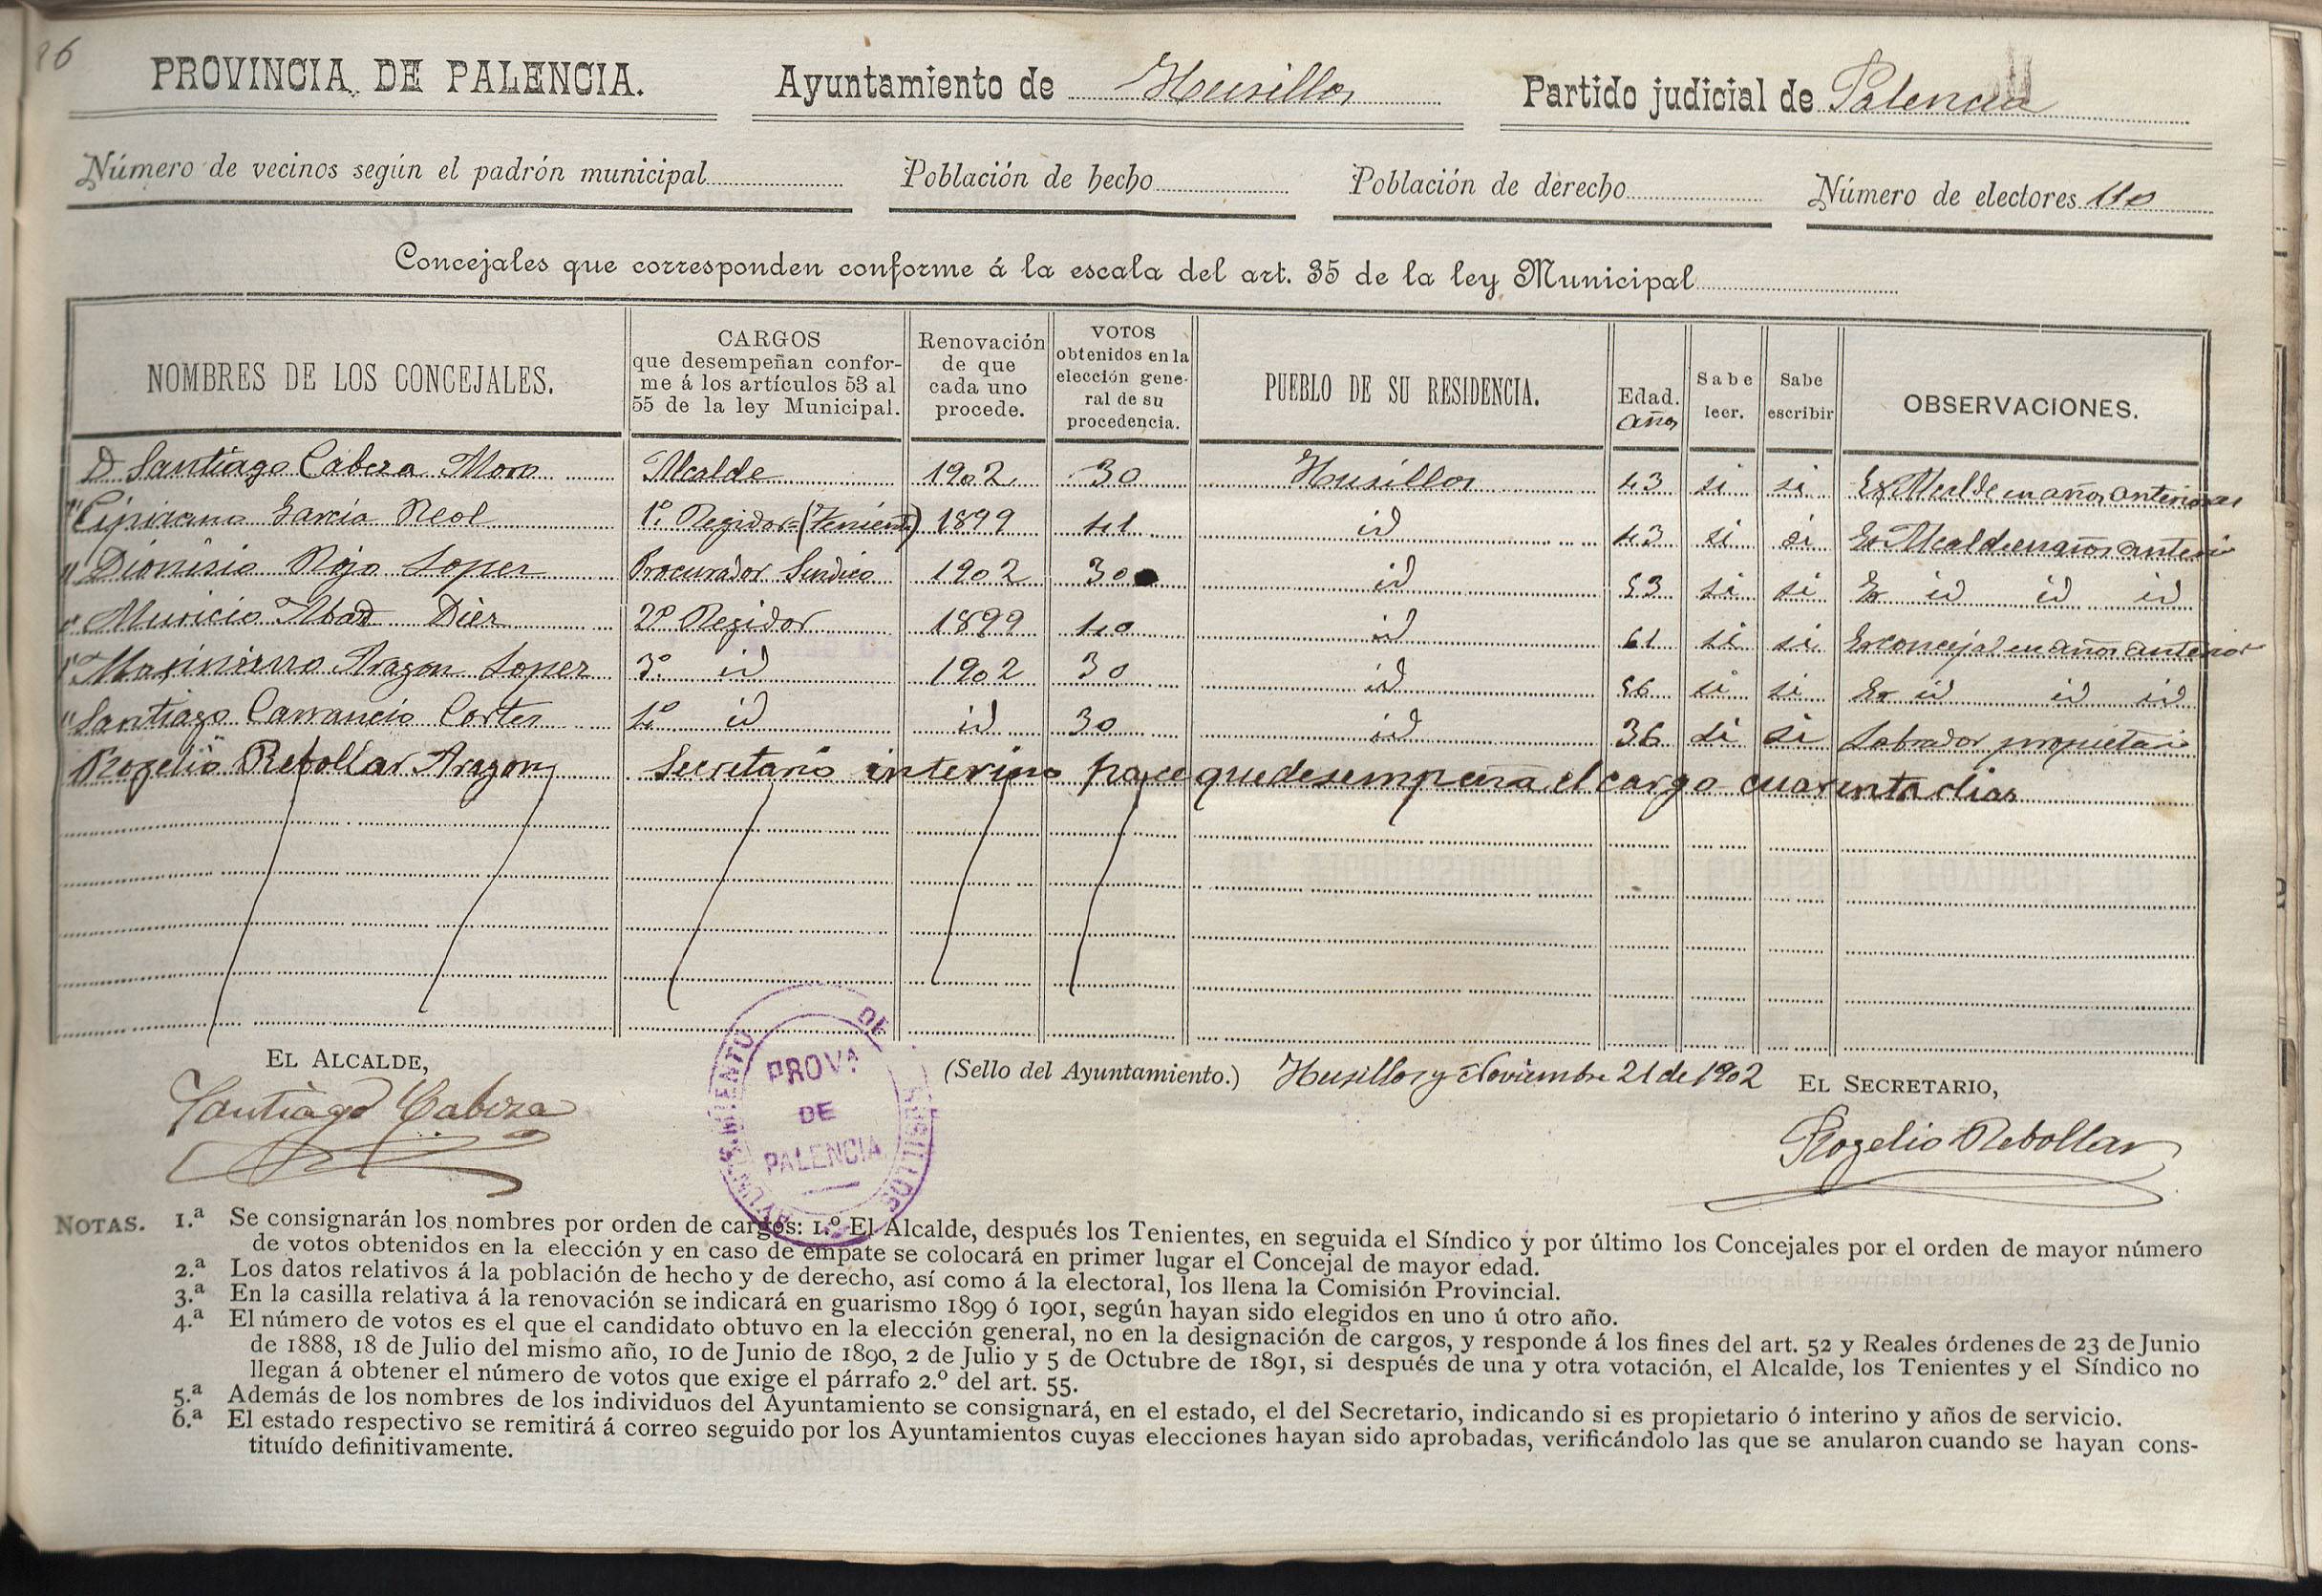 86
PROVINCIA DE PALENCIA. Ayuntamiento de Husillos Partido judicial de Palencia
Número de vecinos según el padrón municipal Población de hecho Población de derecho Número de electores 110
Concejales que corresponden conforme á la escala del art. 35 de la ley Municipal
NOMBRES DE LOS CONCEJALES. CARGOS que desempeñan confor- me á los artículos 53 al 55 de la ley Municipal. Renovación de que cada uno procede. VOTOS obtenidos en la elección gene- ral de su procedencia. PUEBLO DE SU RESIDENCIA. Edad. años Sabe leer. Sabe escribir OBSERVACIONES.
D Santiago Cabeza Moro Alcalde 1902 30 Husillos 43 si si Ex Alcalde en años anteriores
" Cipriano Garcia Reol 1º. Regidor=(Teniente) 1899 41 id 43 si si Ex Alcalde en años anteri
" Dionisio Rojo Lopez Procurador Sindico 1902 30 id 53 si si Ex id id id
" Mauricio Abad Diez 2º Regidor 1899 40 id 61 si si Ex concejal en años anterior
" Maximiano Aragon Lopez 3º id 1902 30 id 56 si si Ex id id id
" Santiago Carrancio Cortes 4º id id 30 id 36 si si Labrador propietari
Rogelio Rebollar Aragon Secretario interino hace que desempeña el cargo cuarenta dias
EL ALCALDE, (Sello del Ayuntamiento.) Husillos y Noviembre 21 de 1902 EL SECRETARIO,
Santiago Cabeza
Rogelio Rebollar
AYUNTAMIENTO DE HUSILLOS
PROVª
DE
PALENCIA
NOTAS. 1.ª Se consignarán los nombres por orden de cargos: 1.º El Alcalde, después los Tenientes, en seguida el Síndico y por último los Concejales por el orden de mayor número
de votos obtenidos en la elección y en caso de empate se colocará en primer lugar el Concejal de mayor edad.
2.ª Los datos relativos á la población de hecho y de derecho, así como á la electoral, los llena la Comisión Provincial.
3.ª En la casilla relativa á la renovación se indicará en guarismo 1899 ó 1901, según hayan sido elegidos en uno ú otro año.
4.ª El número de votos es el que el candidato obtuvo en la elección general, no en la designación de cargos, y responde á los fines del art. 52 y Reales órdenes de 23 de Junio
de 1888, 18 de Julio del mismo año, 10 de Junio de 1890, 2 de Julio y 5 de Octubre de 1891, si después de una y otra votación, el Alcalde, los Tenientes y el Síndico no
llegan á obtener el número de votos que exige el párrafo 2.º del art. 55.
5.ª Además de los nombres de los individuos del Ayuntamiento se consignará, en el estado, el del Secretario, indicando si es propietario ó interino y años de servicio.
6.ª El estado respectivo se remitirá á correo seguido por los Ayuntamientos cuyas elecciones hayan sido aprobadas, verificándolo las que se anularon cuando se hayan cons-
tituído definitivamente.